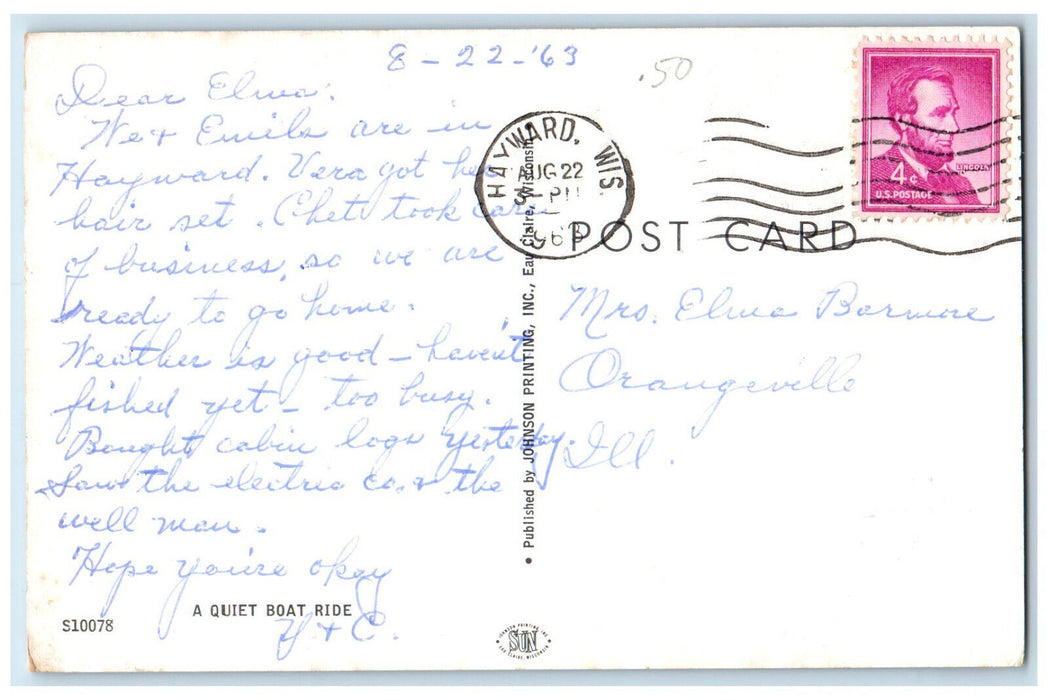 8-22-'63
.50
Dear Elma:
We + Emils are in
Hayward. Vera got her
hair set. Chet took care
of business, so we are
ready to go home.
Weather is good - haven't
fished yet - too busy.
Bought cabin logs yesterday.
Saw the electric co. & the
well man.
Hope you're okay
V + C.
A QUIET BOAT RIDE
S10078
• Published by JOHNSON PRINTING, INC., Eau Claire, Wisconsin
HAYWARD, WIS
AUG 22
PM
1963
4¢
LINCOLN
U.S. POSTAGE
POST CARD
Mrs. Elma Barmore
Orangeville
Ill.
JOHNSON PRINTING INC.
SUN
EAU CLAIRE, WISCONSIN